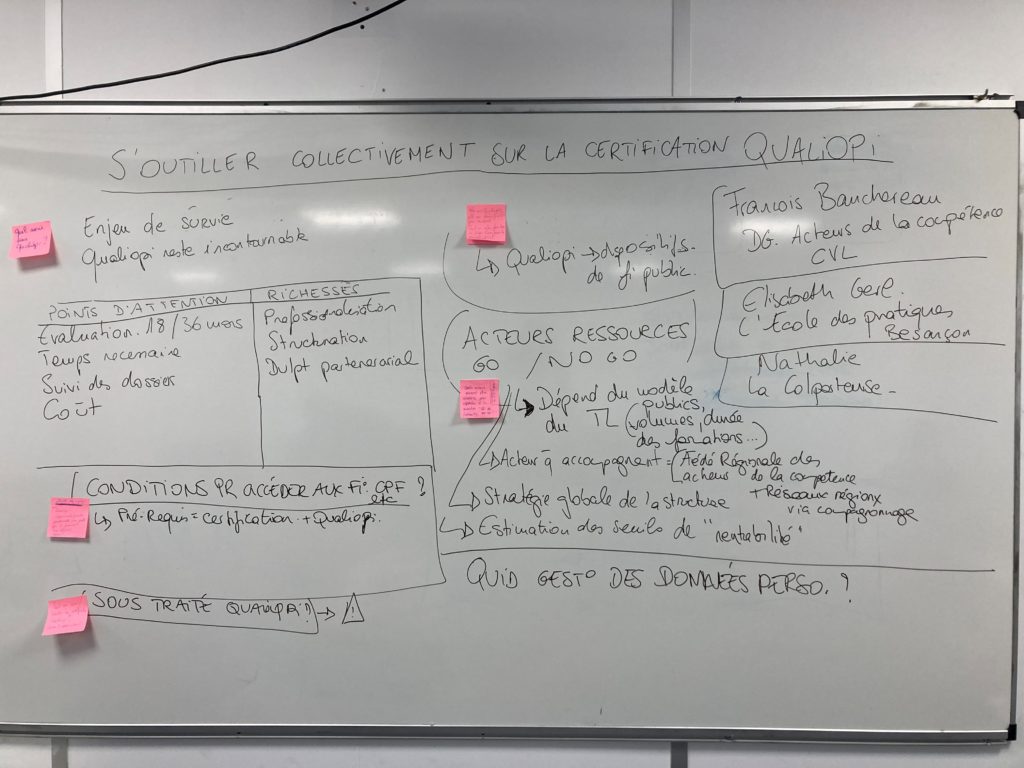 S'OUTILLER COLLECTIVEMENT SUR LA CERTIFICATION QUALIOPI
Enjeu de survie
Qualiopi reste incontournable
POINTS D'ATTENTION
Evaluation 18/36 mois
Temps necenaire
Suivi des dossier
Coût
RICHESSES
Professionalisation
Structuration
Dvlpt partenerarial
CONDITIONS PR ACCÉDER AUX Fi° CPF etc ?
↳ Pré-Requis = certification + Qualiopi.
SOUS TRAITÉ QUALIOPI ! → ⚠
↳ Qualiopi → dispositifs
de fi public.
ACTEURS RESSOURCES
GO / NO GO
↳ Dépend du modèle
du TL (volumes, publics, durée
des formations...)
↳ Acteur à accompagnant = Régionale des
acteurs de la compétence
+ Réseaux régionx
via compagnonnage
↳ Stratégie globale de la structure
↳ Estimation des seuils de "rentabilité"
QUID GESTO DES DONNÉES PERSO. ?
Francois Bauchereau
DG. Acteurs de la compétence
CVL
Elisabeth Gerl.
L'École des pratiques
Besançon
Nathalie
La Colporteuse